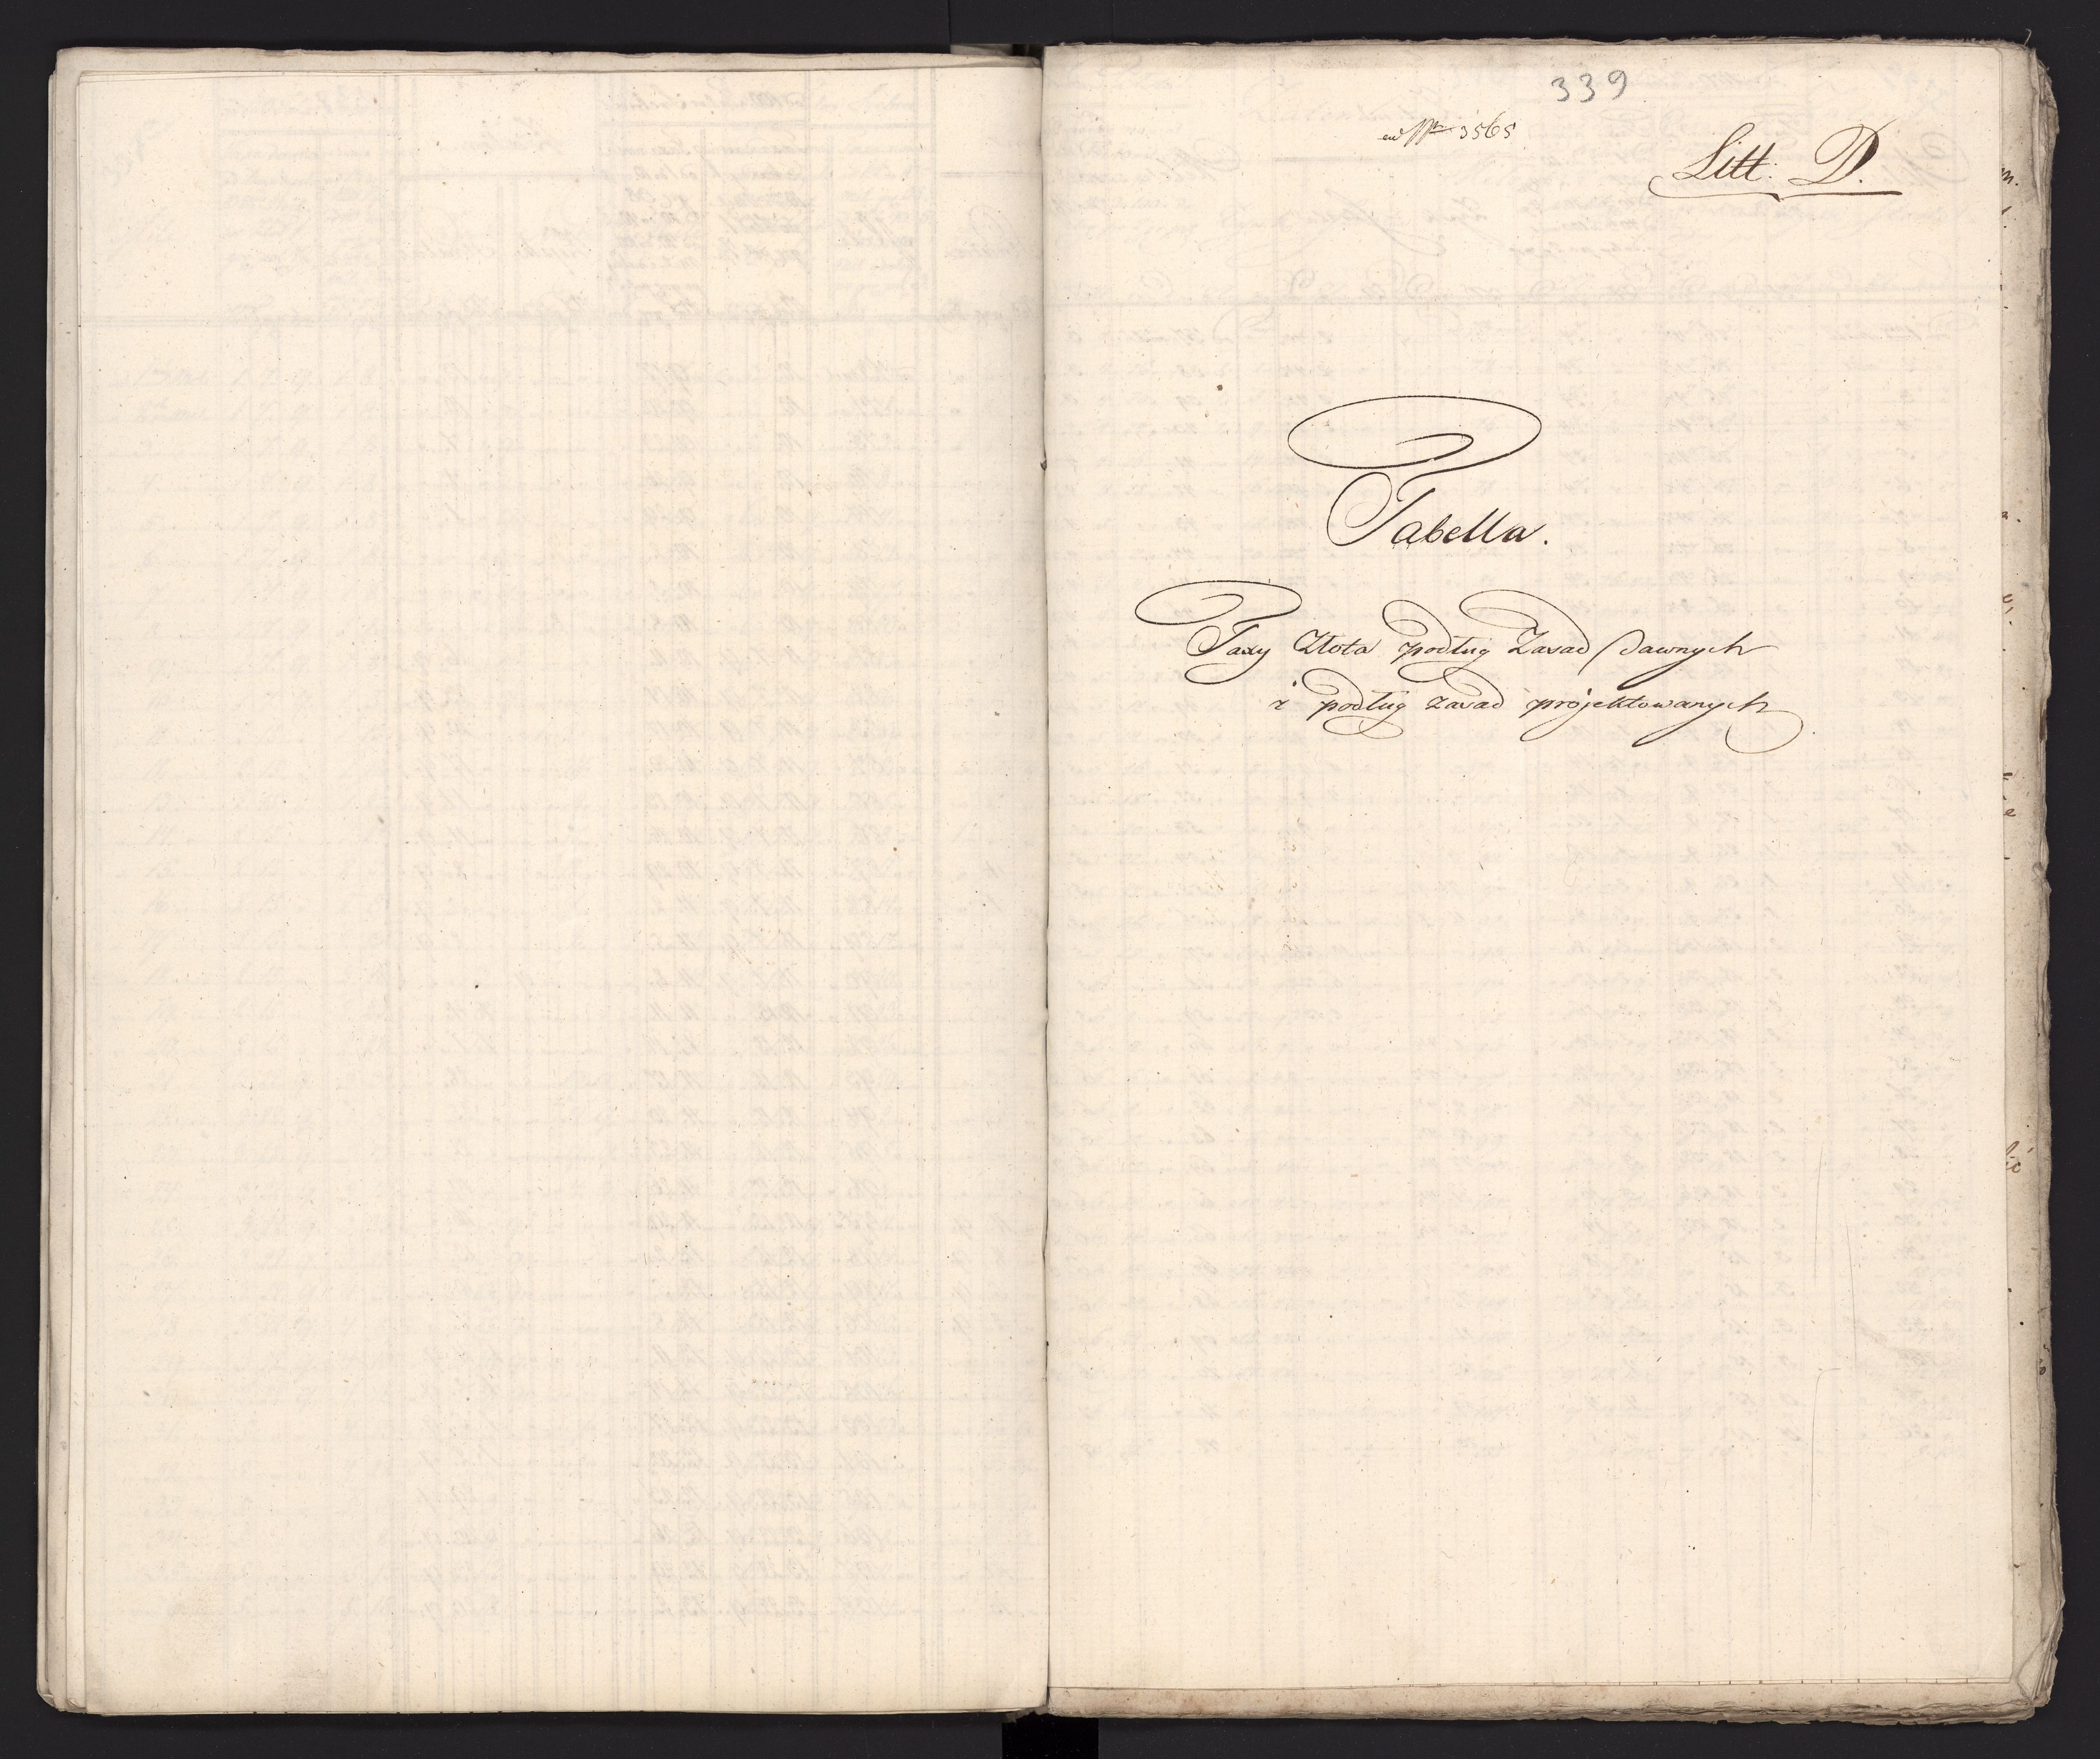 339
ad Nr 3565
Litt: D.
Tabella.
Taxy Złota podług Zasad Dawnych
i podług zasad projektowanych